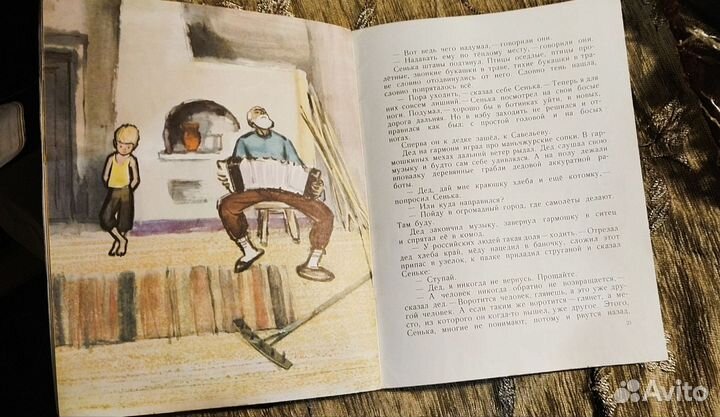 — Вот ведь чего надумал,— говорили они.
— Надавать ему по тёплому месту,— говорили они.
Сенька штаны подтянул. Птицы оседлые, птицы про-
лётные, звонкие букашки в траве, тихие букашки в тра-
ве словно отодвинулись от него. Словно тень нашла,
словно попряталось всё.
— Пора уходить,— сказал себе Сенька.— Теперь я для
них совсем лишний.— Сенька посмотрел на свои босые
ноги. Подумал,— хорошо бы в ботинках уйти, в новых,
дорога дальняя. Но в избу заходить не решился и от-
правился как был: с простой головой и на босых
ногах.
Сперва он к дедке зашёл, к Савельеву.
Дед на гармони играл про маньчжурские сопки. В гар-
мошкиных мехах дальний ветер рыдал. Дед слушал свою
музыку и будто сам себе удивлялся. А на полу лежали
вповалку деревянные грабли дедовой аккуратной ра-
боты.
— Дед, дай мне краюшку хлеба и ещё котомку,—
попросил Сенька.
— Или куда направился?
— Пойду в огромадный город, где самолёты делают.
Там буду.
Дед закончил музыку, завернул гармошку в ситец
и спрятал её в комод.
— У российских людей такая доля — ходить.— Отрезал
дед хлеба край, мёду нацедил в баночку, сложил этот
припас в узелок, к палке приладил струганой и сказал
Сеньке:
— Ступай.
— Дед, я никогда не вернусь. Прощайте.
— А человек никогда обратно не возвращается,—
сказал дед.— Воротится человек, глянешь, а это уже дру-
гой человек. А если таким же воротится — глянет, а ме-
сто, из которого он когда-то вышел, уже другое. Этого,
Сенька, многие не понимают, потому и рвутся назад.
21
Avito